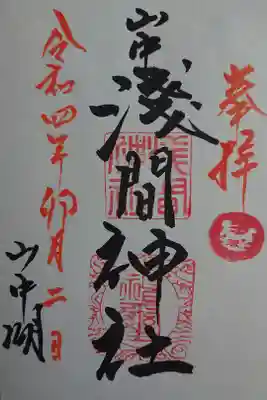 奉拝
山中
浅間神社
令和四年卯月二日
山中湖